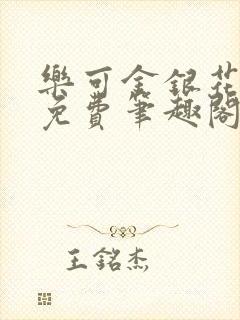 樂可金銀花
免費筆趣閣
王銘杰